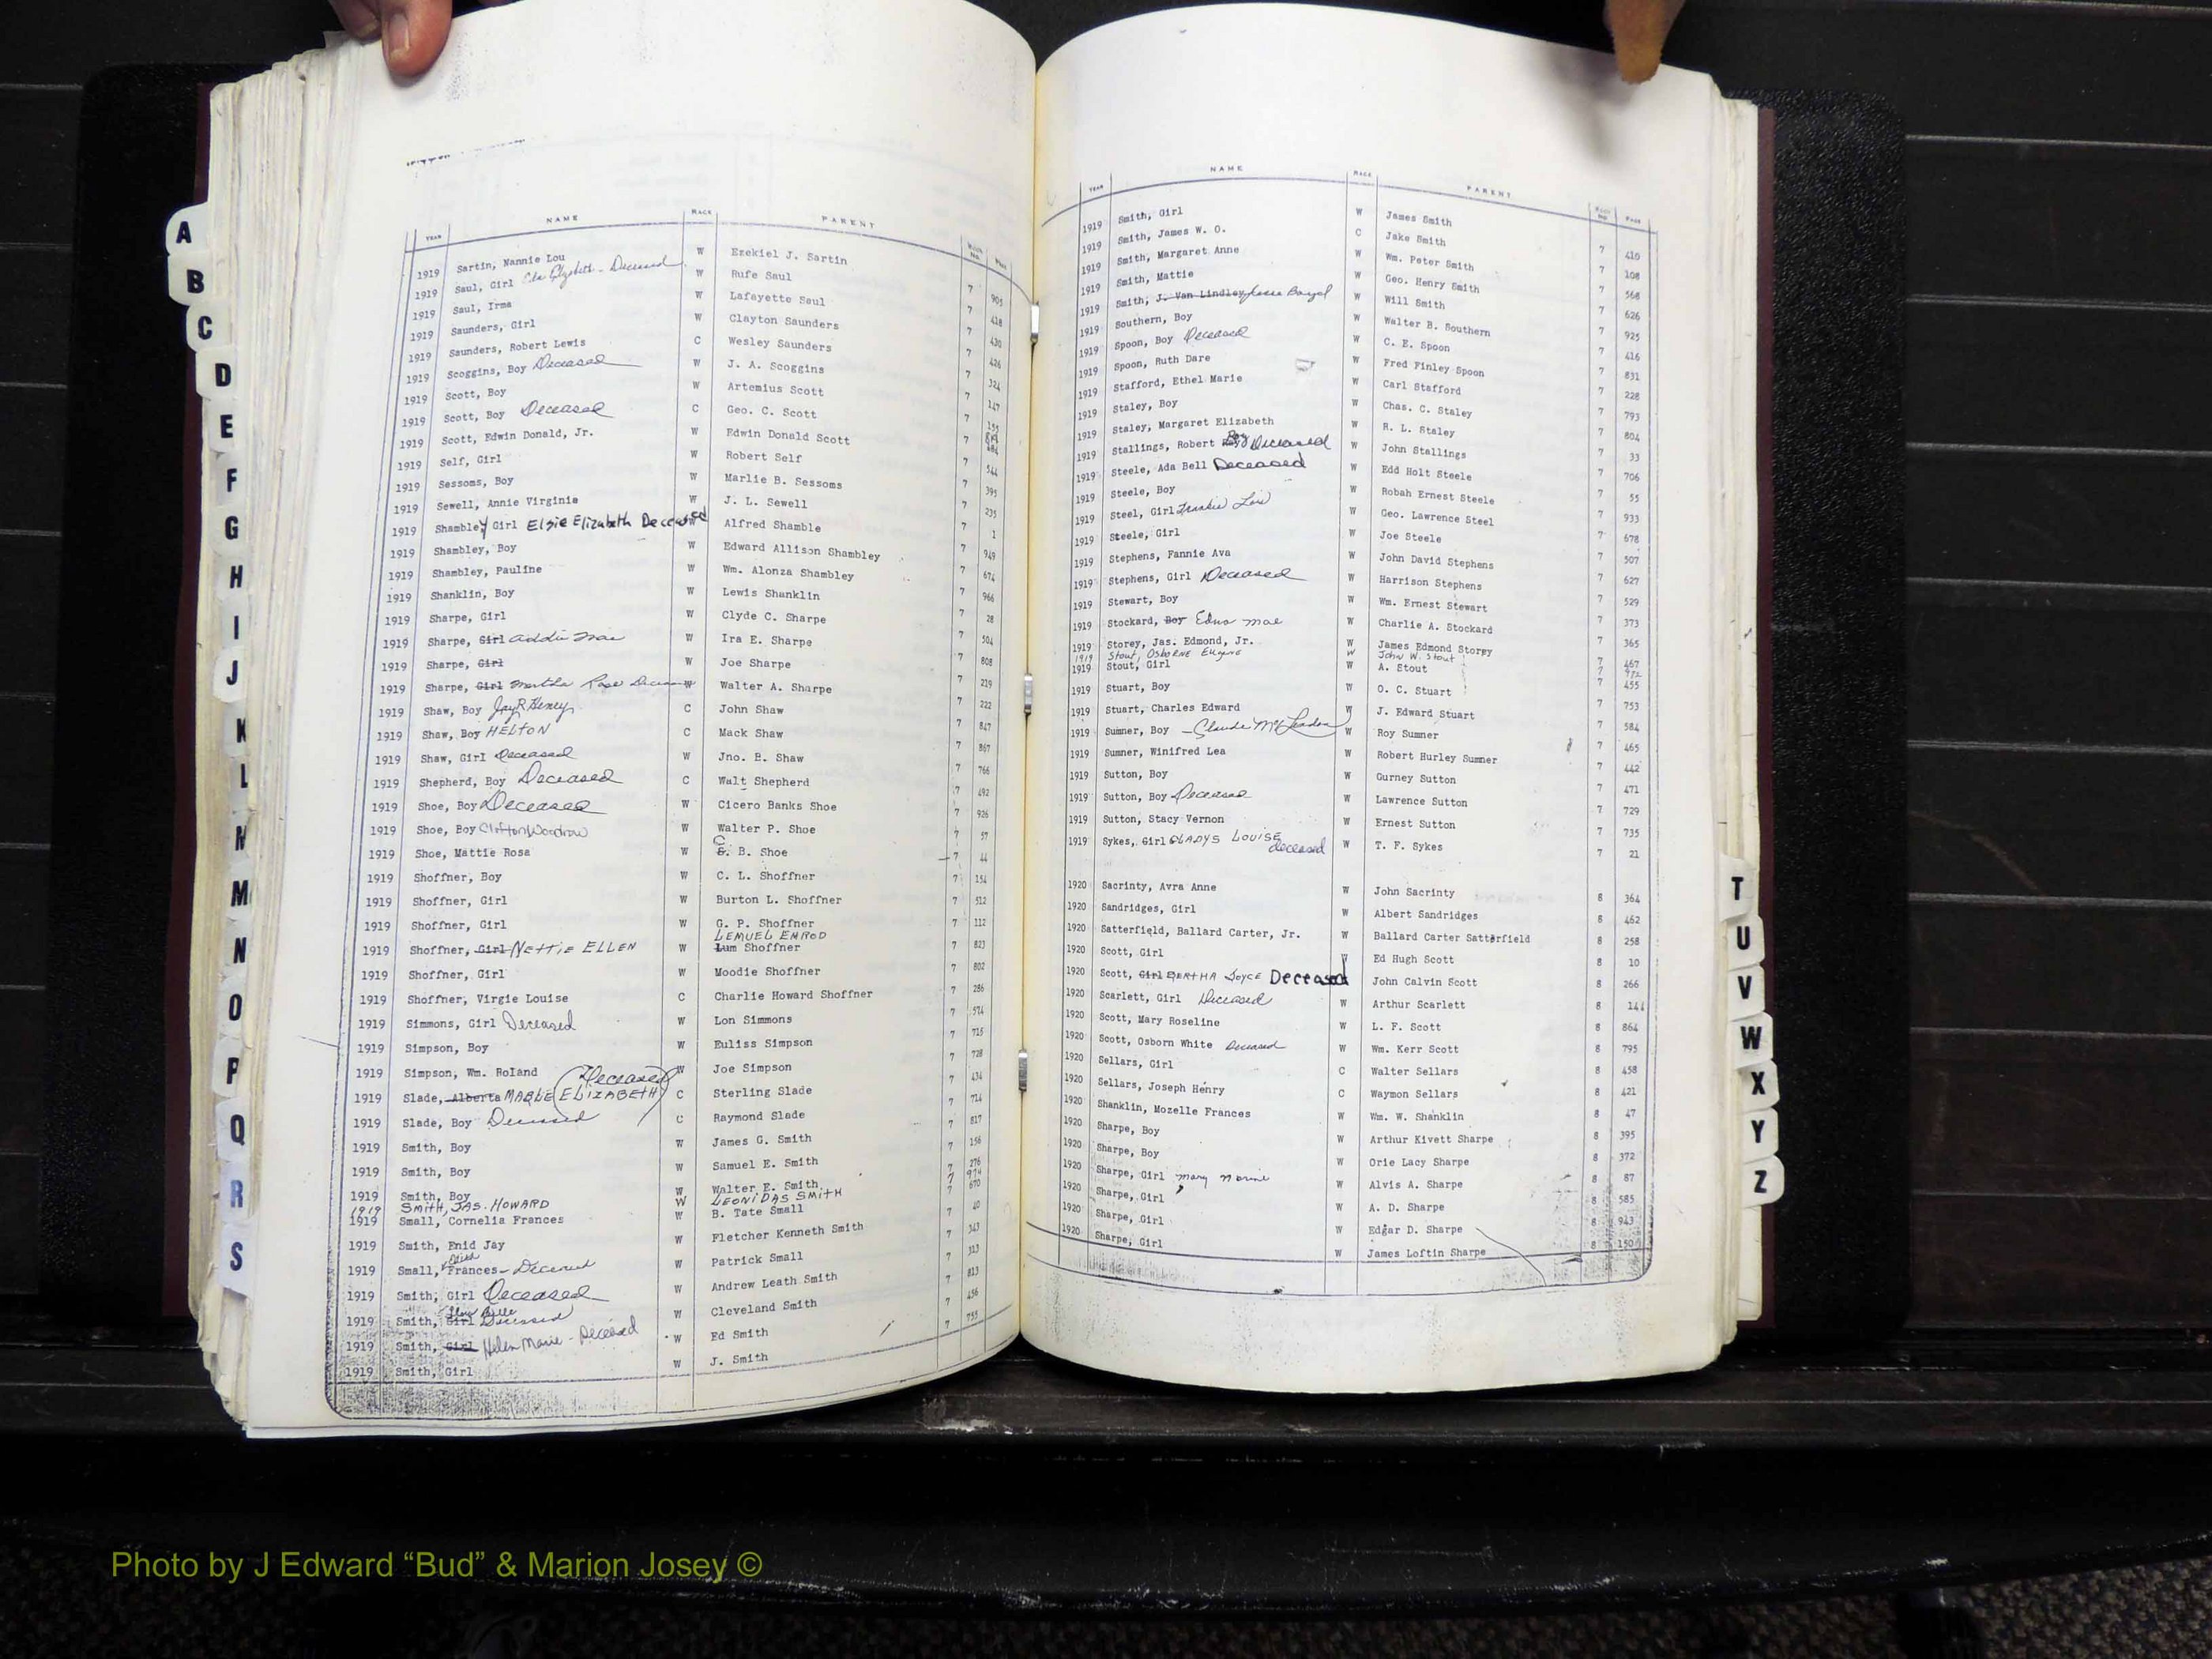 A
B
C
D
E
F
G
H
I
J
K
L
M
M
N
O
P
Q
R
S
YEAR NAME RACE PARENT BOOK NO. PAGE
1919 Sartin, Nannie Lou W Ezekiel J. Sartin 7 905
1919 Saul, Girl Elizabeth - Deceased W Rufe Saul 7 418
1919 Saul, Irma W Lafayette Saul 7 430
1919 Saunders, Girl W Clayton Saunders 7 426
1919 Saunders, Robert Lewis C Wesley Saunders 7 324
1919 Scoggins, Boy Deceased W J. A. Scoggins 7 147
1919 Scott, Boy W Artemius Scott 7 155
1919 Scott, Boy Deceased C Geo. C. Scott 7
1919 Scott, Edwin Donald, Jr. W Edwin Donald Scott 484
1919 Self, Girl W Robert Self 7 544
1919 Sessoms, Boy W Marlie B. Sessoms 7 395
1919 Sewell, Annie Virginia W J. L. Sewell 7 235
1919 Shambley Girl Elsie Elizabeth Deceased W Alfred Shamble 7 1
1919 Shambley, Boy W Edward Allison Shambley 7 949
1919 Shambley, Pauline W Wm. Alonza Shambley 7 674
1919 Shanklin, Boy W Lewis Shanklin 7 966
1919 Sharpe, Girl W Clyde C. Sharpe 7 28
1919 Sharpe, Girl Addie Mae W Ira E. Sharpe 7 504
1919 Sharpe, Girl W Joe Sharpe 7 808
1919 Sharpe, Girl Martha Rose Deceased W Walter A. Sharpe 7 219
1919 Shaw, Boy Jay R Heney C John Shaw 7 222
1919 Shaw, Boy HELTON C Mack Shaw 7 847
1919 Shaw, Girl Deceased W Jno. B. Shaw 7 867
1919 Shepherd, Boy Deceased C Walt Shepherd 7 766
1919 Shoe, Boy Deceased W Cicero Banks Shoe 7 492
1919 Shoe, Boy Clifton Woodrow W Walter P. Shoe 7 926
1919 Shoe, Mattie Rosa W C. B. Shoe 7 57
1919 Shoffner, Boy W C. L. Shoffner 7 44
1919 Shoffner, Girl W Burton L. Shoffner 7 154
1919 Shoffner, Girl W G. P. Shoffner 7 512
1919 Shoffner, Girl NETTIE ELLEN W LEMUEL ENROD Lum Shoffner 7 112
1919 Shoffner, Girl W Moodie Shoffner 7 823
1919 Shoffner, Virgie Louise C Charlie Howard Shoffner 7 802
1919 Simmons, Girl Deceased W Lon Simmons 7 286
1919 Simpson, Boy W Euliss Simpson 7 574
1919 Simpson, Wm. Roland W Joe Simpson 7 715
1919 Slade, Alberta MABLE (ELIZABETH) Deceased C Sterling Slade 7 728
1919 Slade, Boy Deceased C Raymond Slade 7 434
1919 Smith, Boy W James G. Smith 7 714
1919 Smith, Boy W Samuel E. Smith 7 817
1919 Smith, Boy W Walter E. Smith 7 156
1919 SMITH, JAS. HOWARD W LEONIDAS SMITH 7 974
1919 Small, Cornelia Frances W B. Tate Small 7 670
1919 Smith, Enid Jay W Fletcher Kenneth Smith 7 40
1919 Small, Frances - Deceased W Patrick Small 7 343
1919 Smith, Girl Deceased W Andrew Leath Smith 7 313
1919 Smith, Girl Belle Deceased W Cleveland Smith 7 813
1919 Smith, Girl Helen Marie - Deceased W Ed Smith 7 456
1919 Smith, Girl W J. Smith 7 755
YEAR NAME RACE PARENT BOOK NO. PAGE
1919 Smith, Girl W James Smith 7 410
1919 Smith, James W. O. C Jake Smith 7 108
1919 Smith, Margaret Anne W Wm. Peter Smith 7 568
1919 Smith, Mattie W Geo. Henry Smith 7 626
1919 Smith, J. Van Lindley Jesse Boyd W Will Smith 7 925
1919 Southern, Boy W Walter B. Southern 7 416
1919 Spoon, Boy Deceased W C. E. Spoon 7 831
1919 Spoon, Ruth Dare W Fred Finley Spoon 7 228
1919 Stafford, Ethel Marie W Carl Stafford 7 793
1919 Staley, Boy W Chas. C. Staley 7 804
1919 Staley, Margaret Elizabeth W R. L. Staley 7 33
1919 Stallings, Robert Deceased W John Stallings 7 706
1919 Steele, Ada Bell Deceased W Edd Holt Steele 7 55
1919 Steele, Boy W Robah Ernest Steele 7 933
1919 Steel, Girl Frankie Lois W Geo. Lawrence Steel 7 678
1919 Steele, Girl W Joe Steele 7 507
1919 Stephens, Fannie Ava W John David Stephens 7 627
1919 Stephens, Girl Deceased W Harrison Stephens 7 529
1919 Stewart, Boy W Wm. Ernest Stewart 7 373
1919 Stockard, Boy Edna Mae W Charlie A. Stockard 7 365
1919 Storey, Jas. Edmond, Jr. W James Edmond Storey 7 467
1919 Stout, OSBORNE EUGENE W John W. Stout 7 972
1919 Stout, Girl W A. Stout 7 455
1919 Stuart, Boy W O. C. Stuart 7 753
1919 Stuart, Charles Edward W J. Edward Stuart 7 584
1919 Sumner, Boy - Claude McLendon W Roy Sumner 7 465
1919 Sumner, Winifred Lea W Robert Hurley Sumner 7 442
1919 Sutton, Boy W Gurney Sutton 7 471
1919 Sutton, Boy Deceased W Lawrence Sutton 7 729
1919 Sutton, Stacy Vernon W Ernest Sutton 7 735
1919 Sykes, Girl GLADYS LOUISE deceased W T. F. Sykes 7 21
1920 Sacrinty, Avra Anne W John Sacrinty 8 364
1920 Sandridges, Girl W Albert Sandridges 8 462
1920 Satterfield, Ballard Carter, Jr. W Ballard Carter Satterfield 8 258
1920 Scott, Girl W Ed Hugh Scott 8 10
1920 Scott, Girl BERTHA JOYCE Deceased John Calvin Scott 8 266
1920 Scarlett, Girl Deceased W Arthur Scarlett 8 144
1920 Scott, Mary Roseline W L. F. Scott 8 864
1920 Scott, Osborn White Deceased W Wm. Kerr Scott 8 795
1920 Sellars, Girl C Walter Sellars 8 458
1920 Sellars, Joseph Henry C Waymon Sellars 8 421
1920 Shanklin, Mozelle Frances W Wm. W. Shanklin 8 47
1920 Sharpe, Boy W Arthur Kivett Sharpe 8 395
1920 Sharpe, Boy W Orie Lacy Sharpe 8 372
1920 Sharpe, Girl Mary W Alvis A. Sharpe 8 87
1920 Sharpe, Girl W A. D. Sharpe 8 585
1920 Sharpe, Girl W Edgar D. Sharpe 8 943
1920 Sharpe, Girl W James Loftin Sharpe 8 150
T
U
V
W
X
Y
Z
Photo by J Edward “Bud” & Marion Josey ©